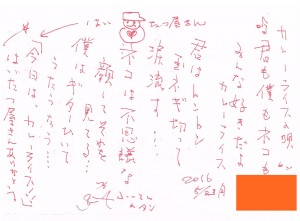 はいたつ屋さん
カレーライスの唄
君も僕もネコも
みんな好きだよ
カレーライス
君はトントン
玉ネギ切って
涙流す…
ネコは不思議な
顔してそれを
見てる…
僕はギターひいて
うたうたう…
今日は、カレーライス
はいたつ屋さんありがとう
2016